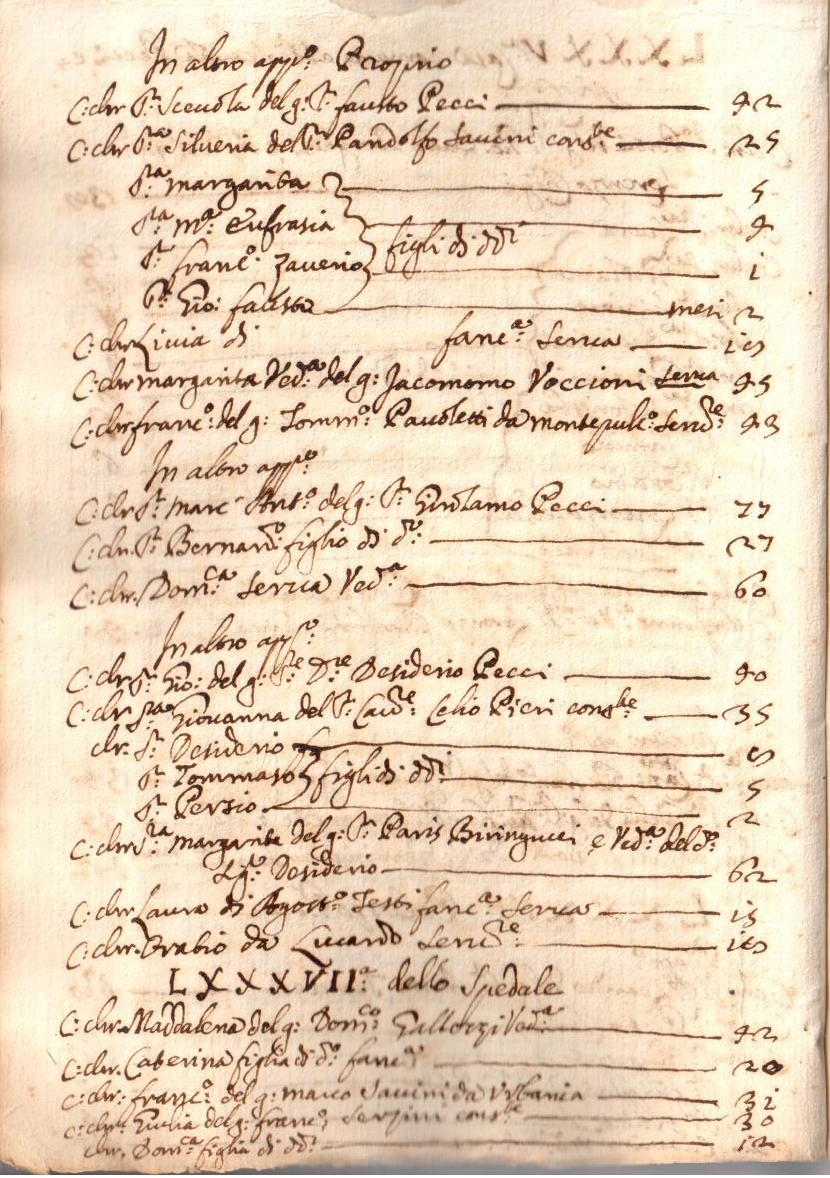 In altro app.º Proprio
C: chr S.r Scevola del q: S.r fausto Pecci 42
C: chr S.ra Silveria del S.r Pandolfo Savini cons.te 25
S.ra margarita 5
S.ra M.a Eufrasia 4
S.r franc.º Zaverio figli di dd.i 1
S.r Gio: fausto mesi 2
C: chr Livia di fanc.a serva
C: chr margarita Ved.a del q: Jacomomo Voccioni serva 45
C: chr franc.º del q: Tomm.º Pavoletti da montepulc.º serv.re 43
In altro app.º
C: chr S.r Marc' Ant.º del q: S.r Girolamo Pecci 77
C: chr. S.r Bernard.º figlio di d.º 27
C: chr. Dom.ca serva Ved.a 60
In altro app.º
C: chr S.r Gio: del q: S.re D.re Desiderio Pecci 40
C: chr S.ra Giovanna del S.r Cav.re Celio Pieri cons.te 35
chr. S.r Desiderio
S.r Tommaso figli di dd.i 5
S.r Persio 2
C: chr S.ra Margarita del q: S.r Paris Biringucci e Ved.a del d.º
q.º Desiderio 62
C: chr Laura di Agost.º Testi fanc.a serva 15
C: chr. Orazio da Lucardo serv.re
LXXXVII.a dello Spedale
C: chr Maddalena del q: Dom.co Gallozzi Ved.a 42
C: chr. Caterina figlia di d.º fanc.a 20
C: chr: franc.º del q: marco Savini da Urbania 31
C: chr: Giulia del q: franc.º cons.te 30
chr. Dom.ca figlia di dd.i 12